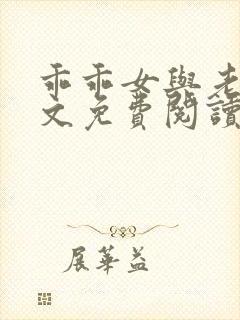 乖乖女與老
文免費閱讀
展華益